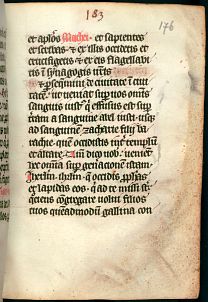 183
176
et ap̄tos
et sapientes
et scribas · et ex illis occidetis et
crucifigetis · et ex eis flagellapi
tis ī synagogis
et p̄sequemini de ciuitate ī ciui
tatē · ut ueniat sup uos omīs
sanguis iust⁹ qui effusus est sup
terram a sanguine abel iusti · usq;
ad sanguinem zacharie filij ba
rachie · quē occidistis int̄ templū
et altare · Am̄ dico uob̄ · uenient
hec omīa sup generacionē istam ·
Ihrlm · ihrlm · q̄ occidis prophas
et lapidas eos · q̄ ad te missi sūt
quotiens
uolui filios
tuos quēadmodū gallina con